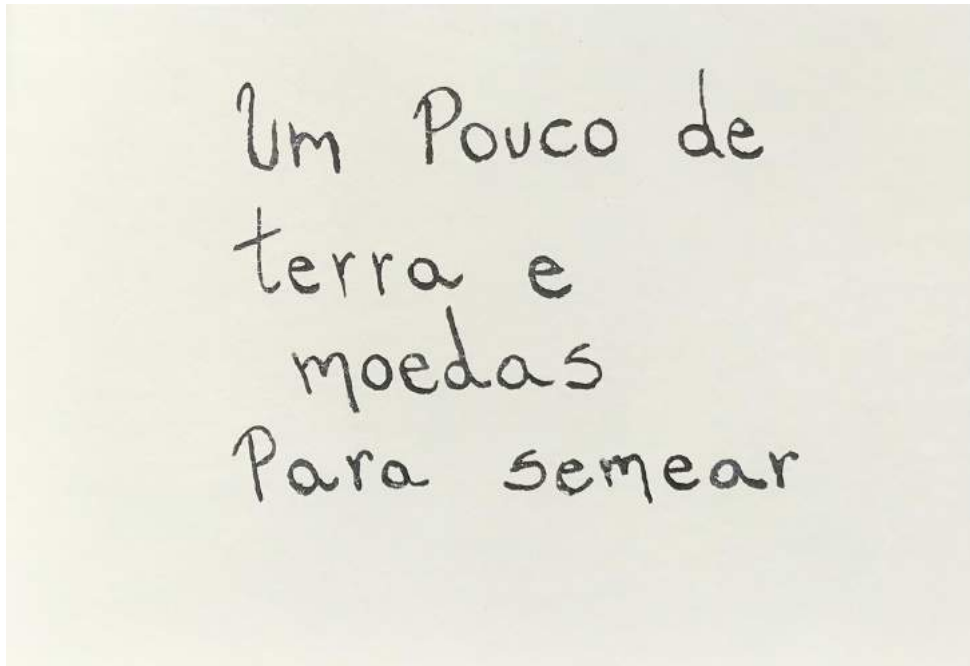 Um Pouco de
terra e
moedas
Para semear